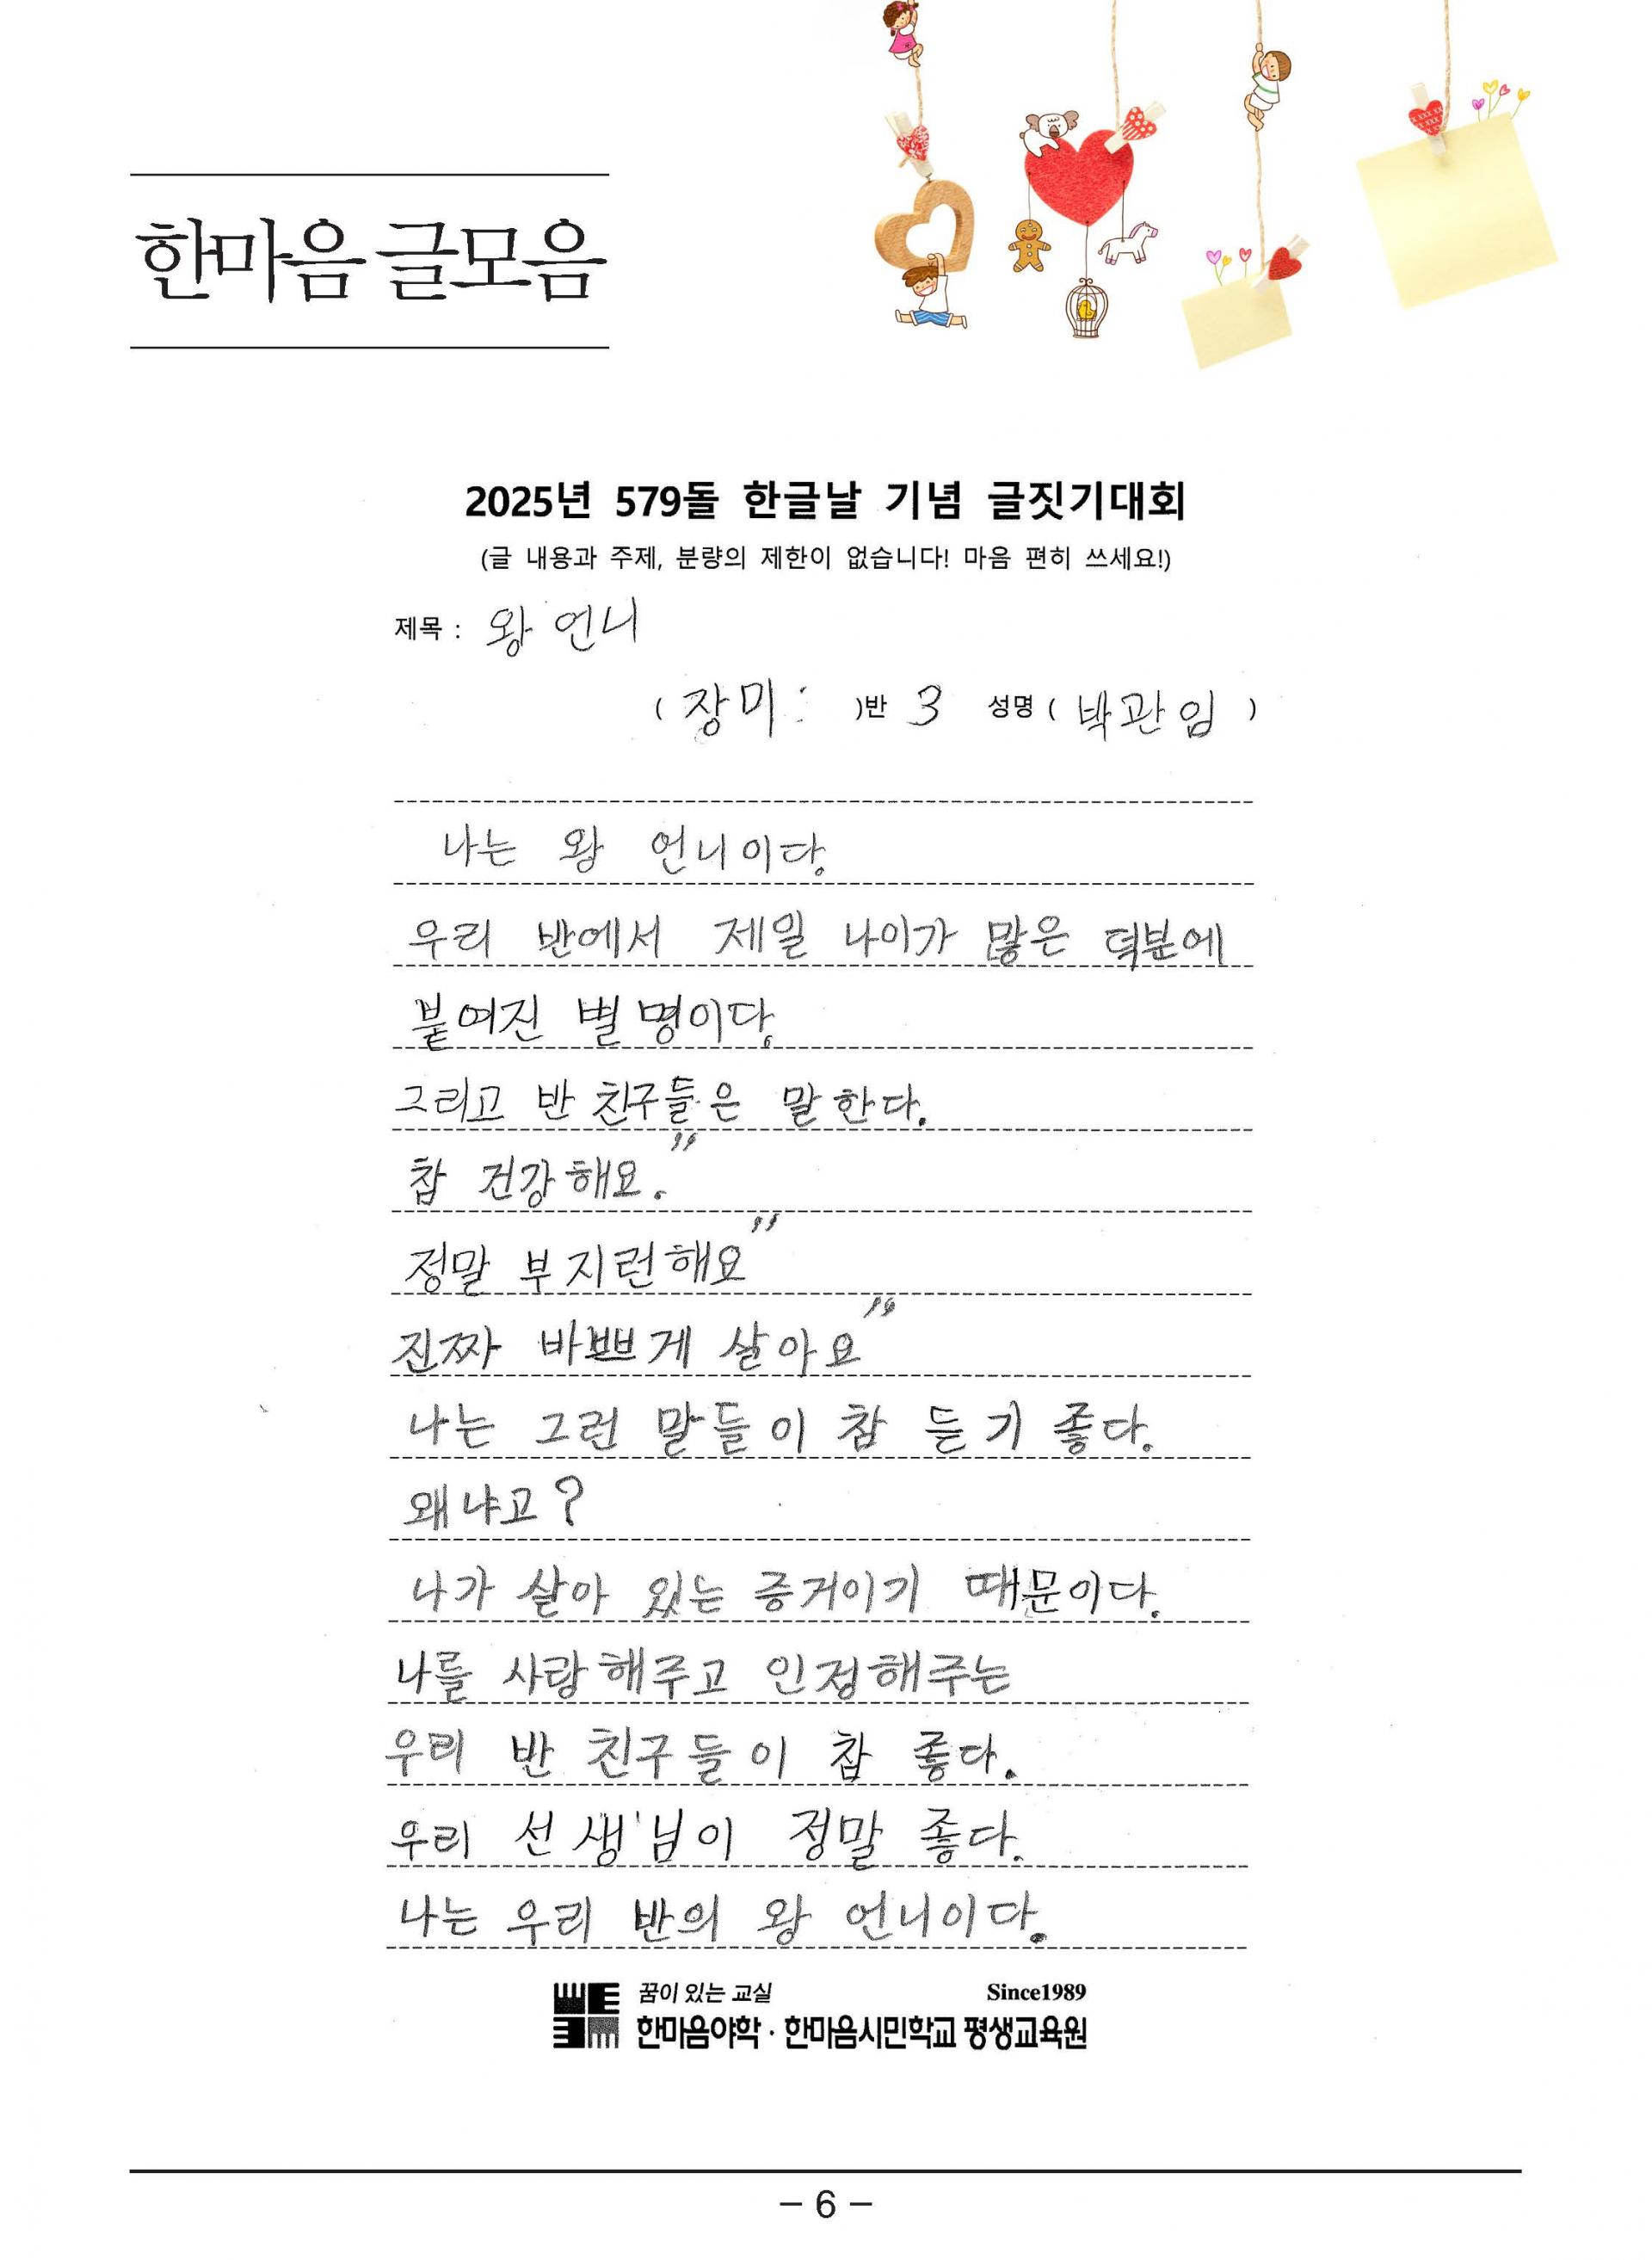 한마음 글모음
2025년 579돌 한글날 기념 글짓기대회
(글 내용과 주제, 분량의 제한이 없습니다! 마음 편히 쓰세요!)
제목 : 왕 언니
( 장미 : )반 3 성명 ( 박관임 )
나는 왕 언니이다.
우리 반에서 제일 나이가 많은 덕분에
붙여진 별명이다.
그리고 반 친구들은 말한다.
참 건강해요."
정말 부지런해요"
진짜 바쁘게 살아요"
나는 그런 말들이 참 듣기 좋다.
왜냐고?
나가 살아 있는 증거이기 때문이다.
나를 사랑해주고 인정해주는
우리 반 친구들이 참 좋다.
우리 선생님이 정말 좋다.
나는 우리 반의 왕 언니이다.
꿈이 있는 교실 Since1989
한마음야학 · 한마음시민학교 평생교육원
– 6 –